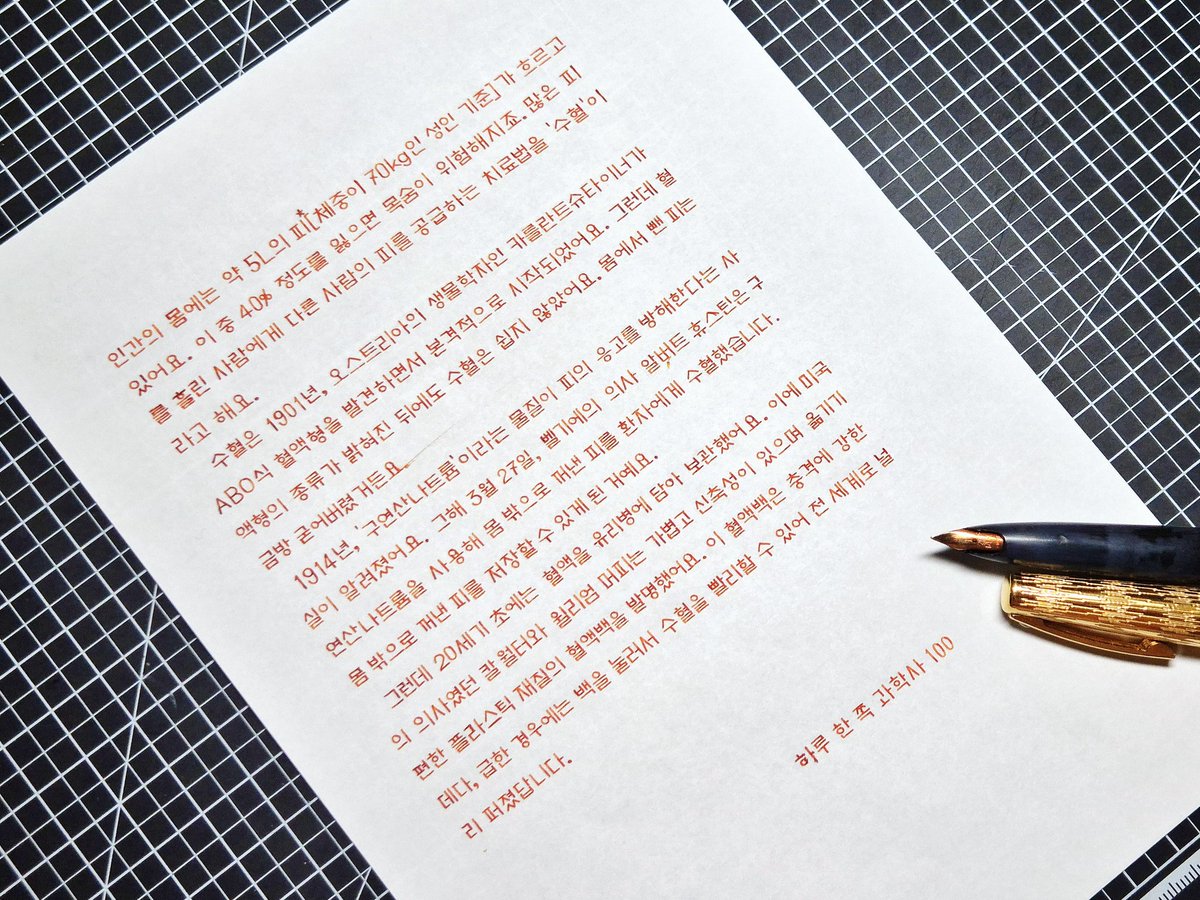 인간의 몸에는 약 5L의 피[체중이 70kg인 성인 기준]가 흐르고
있어요. 이 중 40% 정도를 잃으면 목숨이 위험해지죠. 많은 피
를 흘린 사람에게 다른 사람의 피를 공급하는 치료법을 '수혈'이
라고 해요.
수혈은 1901년, 오스트리아의 생물학자인 카를란트슈타이너가
ABO식 혈액형을 발견하면서 본격적으로 시작되었어요. 그런데 혈
액형의 종류가 밝혀진 뒤에도 수혈은 쉽지 않았어요. 몸에서 뺀 피는
금방 굳어버렸거든요.
1914년, '구연산나트륨'이라는 물질이 피의 응고를 방해한다는 사
실이 알려졌어요. 그해 3월 27일, 벨기에의 의사 알버트 휴스틴은 구
연산나트륨을 사용해 몸 밖으로 꺼낸 피를 환자에게 수혈했습니다.
몸 밖으로 꺼낸 피를 저장할 수 있게 된 거예요.
그런데 20세기 초에는 혈액을 유리병에 담아 보관했어요. 이에 미국
의 의사였던 칼 월터와 윌리엄 머피는 가볍고 신축성이 있으며 옮기기
편한 플라스틱 재질의 혈액백을 발명했어요. 이 혈액백은 충격에 강한
데다, 급한 경우에는 백을 눌러서 수혈을 빨리할 수 있어 전 세계로 널
리 퍼졌답니다.
하루 한 쪽 과학사 100